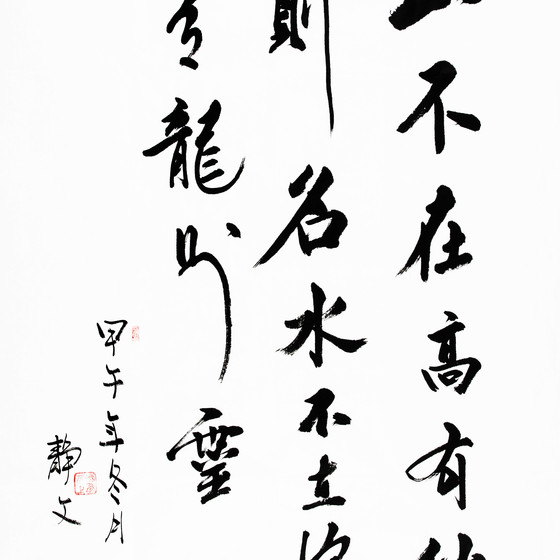 山不在高有仙
则名水不在深
有龍则靈
甲午年冬月
静文